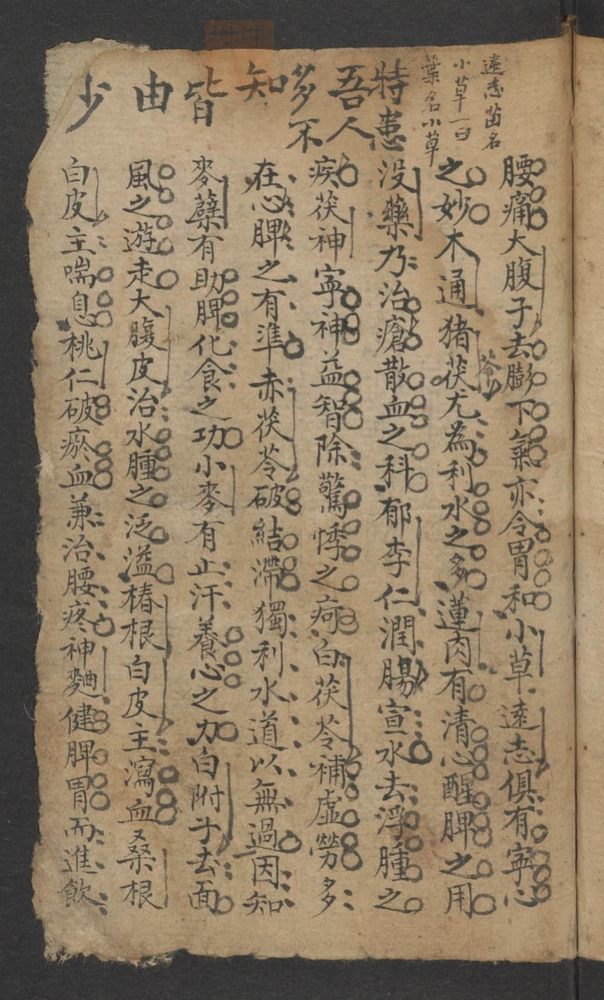 遠志苗名
小草一曰
葉名小草
特患
吾人
多不
知
皆
由
少
腰痛大腹子去膨下氣亦令胃和小草遠志俱有寧心
之妙木通猪茯尤為利水之多蓮肉有清心醒脾之用
苓
没藥乃治瘡散血之科郁李仁潤腸宣水去浮腫之
疾茯神寧神益智除驚悸之疴白茯苓補虛勞多
在心脾之有準赤茯苓破結滯獨利水道以無過因知
麥蘗有助脾化食之功小麥有止汗養心之力白附子去面
風之遊走大腹皮治水腫之泛溢椿根白皮主瀉血又桑根
白皮主喘息桃仁破瘀血兼治腰疼神麯健脾胃而進飲